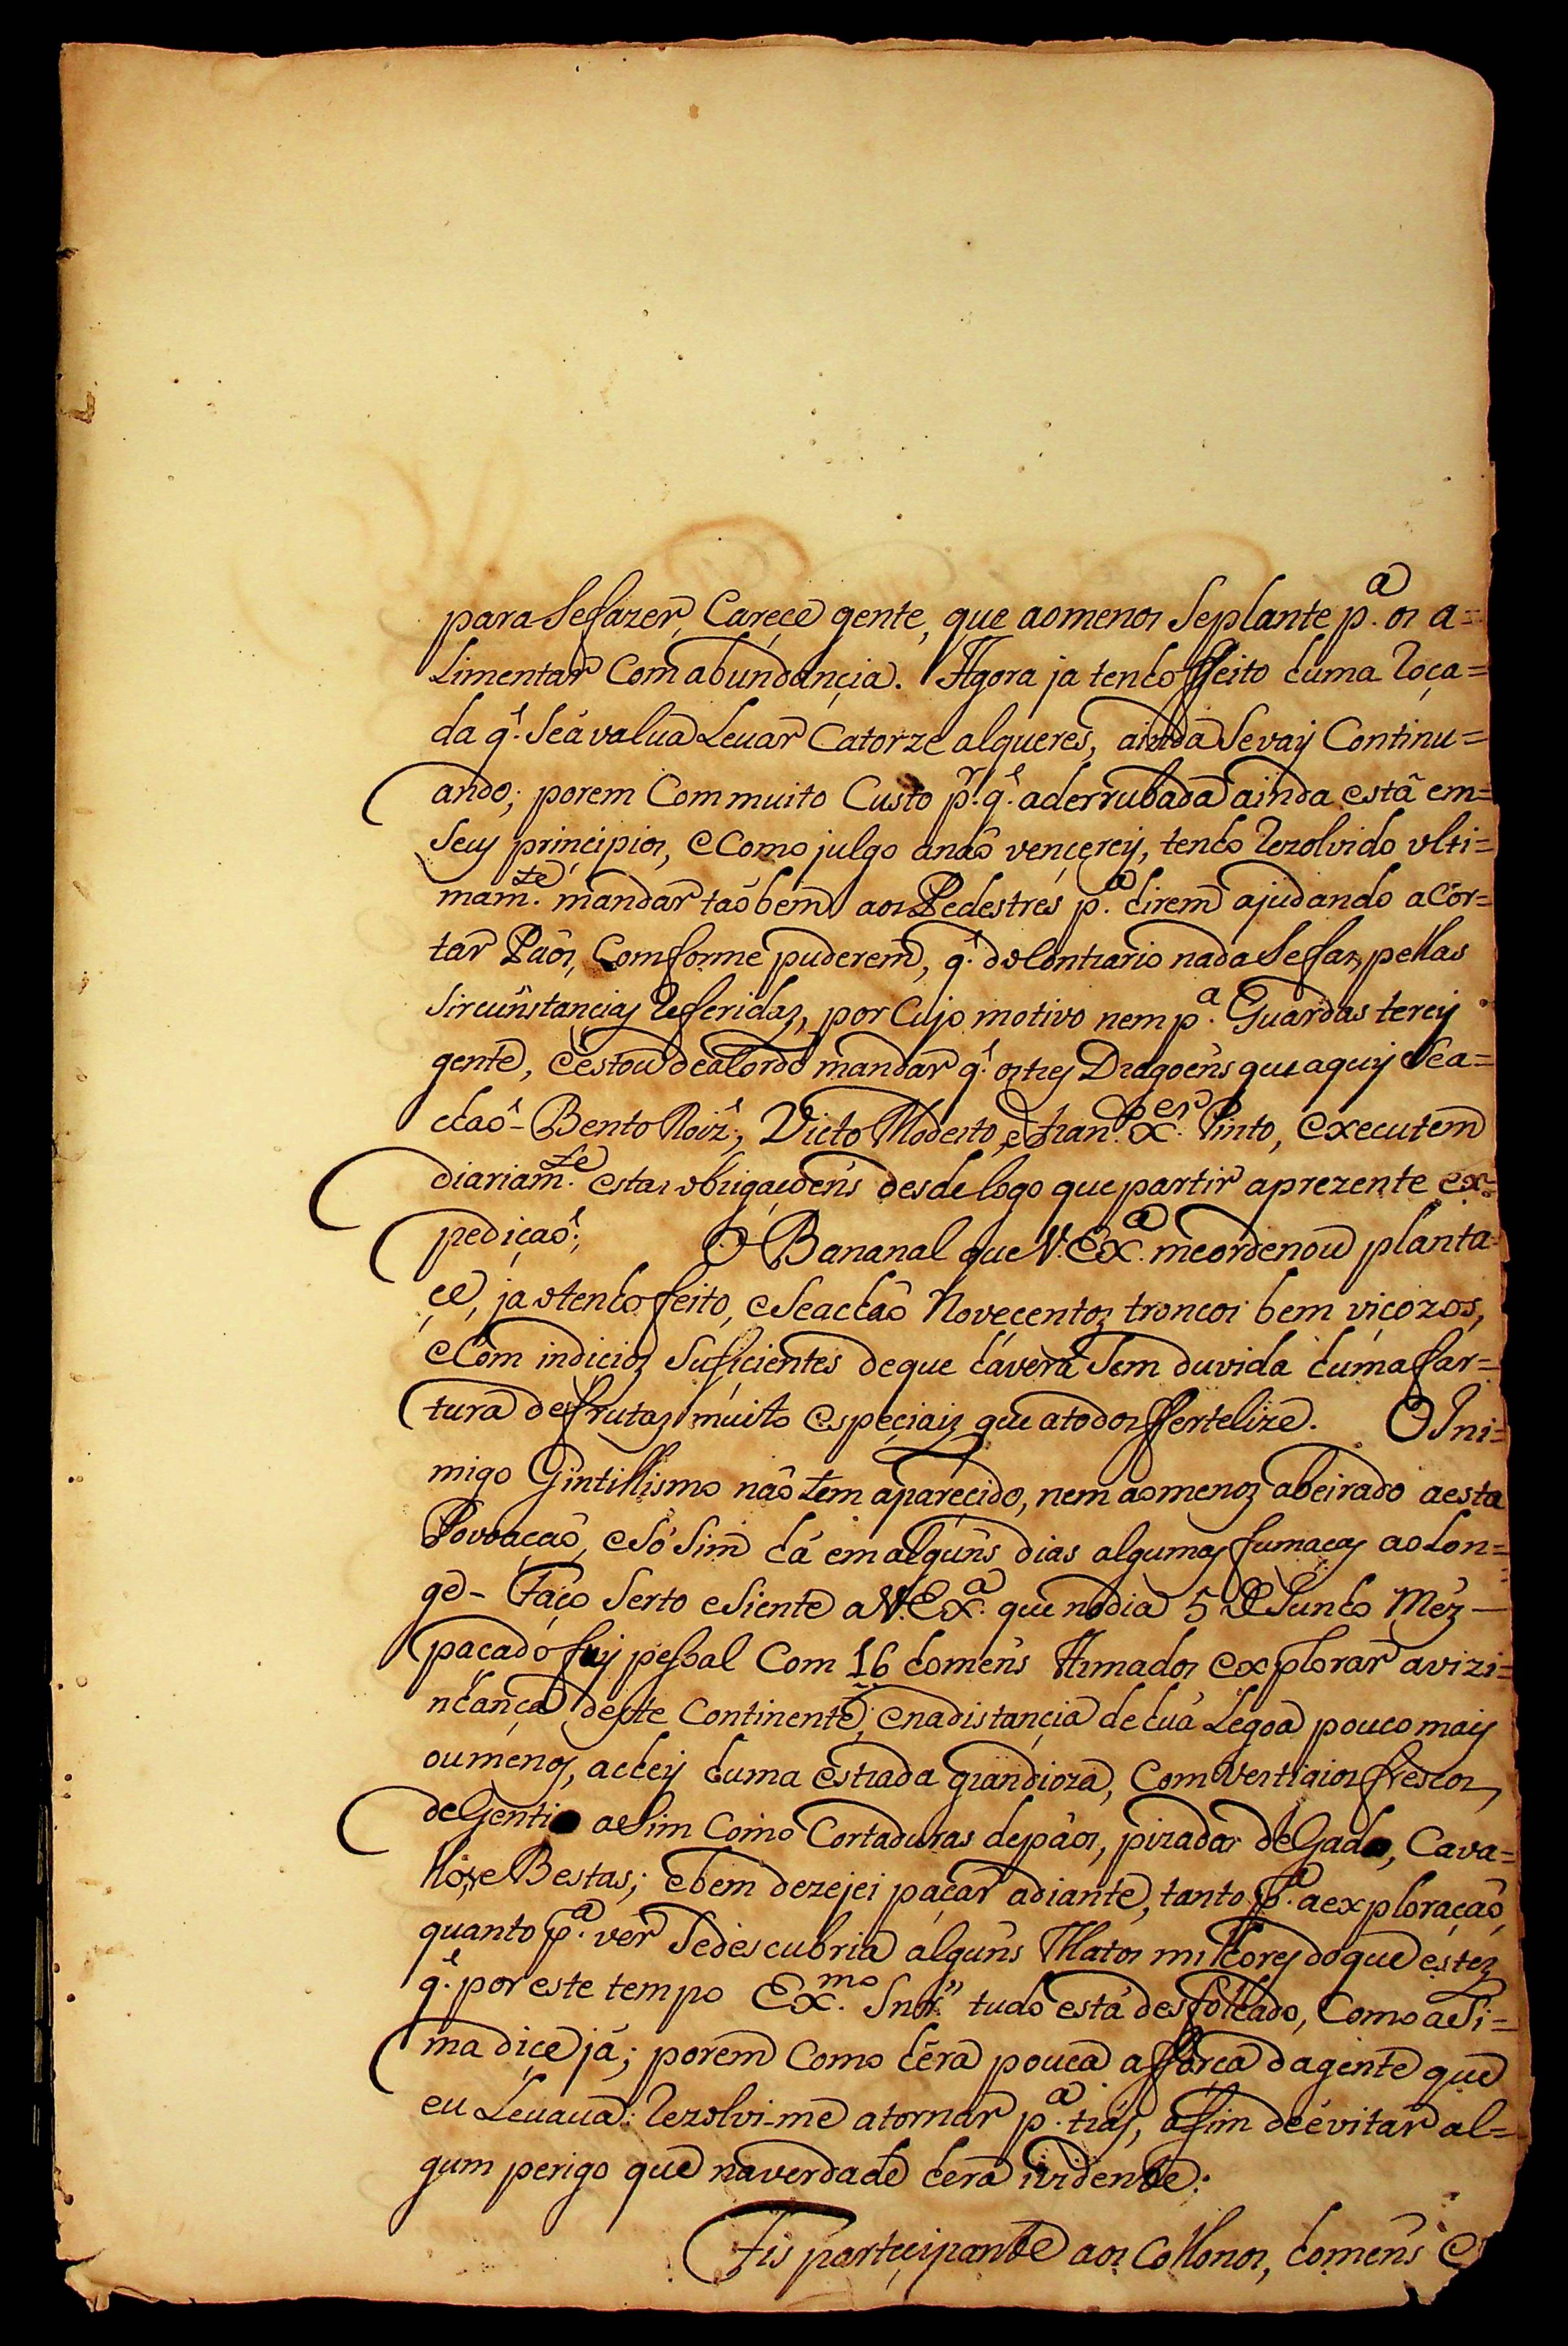 para Sefazer, Carece gente, que aomenos Seplante p.ª os a=
Limentar Com abundançia. Agora ja tenho ffeito huma Roça=
da q.' Seávalua Levar Catorze alqueres, ainda Sevay Continu=
ando; porem Com muito Custo p.r q.' aderrubada ainda está em=
Seus principios, eComo julgo anaõ vençerey, tenho Rezolvido ulti=
mam.te mandar taõbem aos Pedestres p.ª hirem ajudando aCor=
tar Páos, Comforme puderem, q.' doContrario nada Sefas, pellas
Sircunstançias Referidas, por Cujo motivo nem p.ª Guardas terey
gente, eestou deaCordo mandar q.' os tres Dragoens que aquy Sea=
chaõ - Bento Roiz', Victo Modesto, eFran.co X.er Pinto, executem
diariam.te estas obrigaçoens desdelogo que partir aprezente ex=
pediçaõ; O Bananal que V. Ex.ª meordenou planta=
çe, ja otenho feito, eSeachaõ Novecentos troncos bem viçozos,
eCom indicios Suficientes deque háverá Sem duvida humafar=
tura defrutas muito espeçiais que atodos ffertelize. O Ini=
migo Gintillismo naõ tem apareçido, nem aomenos abeirado aesta
Povoaçaõ, eSó Sim há em algúns dias algumas fumaças aoLon=
ge - Faço Serto eSiente a V. Ex.ª que nodia 5 de Junho Mez -
paçado fuy pessoal Com 16 homens Armados explorar avizi=
nhança deste Continente, enadistançia de huá Legoa pouco mais
oumenos, achey huma estrada grandioza, Com Vestigios frescos,
deGentio aSim Como Cortaduras depáos, pizadas deGado, Cava=
llos, e Bestas; ebem dezejei paçar adiante, tanto p.ª aexploraçaõ,
quanto p.ª ver Sedescubria alguns Matos milhores doque estes
q.' por este tempo Ex.mo Snr.' tudo está desfolhado, Como aSi=
ma diçe já; porem Como héra pouca afforça dagente que
eu Levava: Rezolvi-me atornar p.ª tras, afim deévitar al=
gum perigo que naverdade hera ividente:
Fis partecipante aos Collonos, homens e